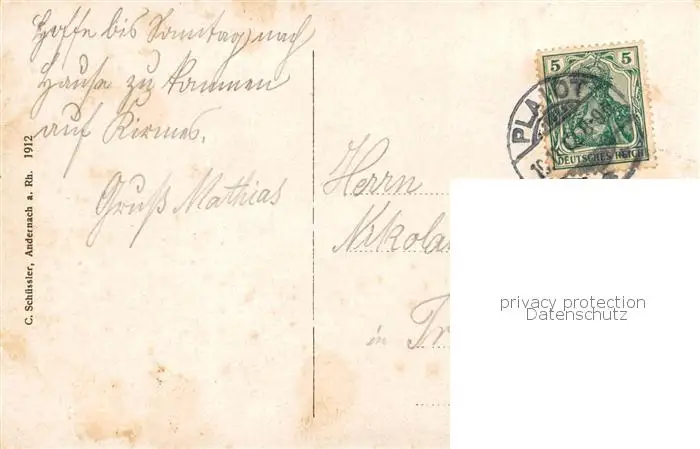 Hoffe bis Sonntag nach
Hause zu kommen
auf Kirmes.
Gruß Mathias
C. Schüssler, Andernach a. Rh. 1912
5 5
PLAIDT
DEUTSCHES REICH
Herrn
Nikola
in Tr
privacy protection
Datenschutz